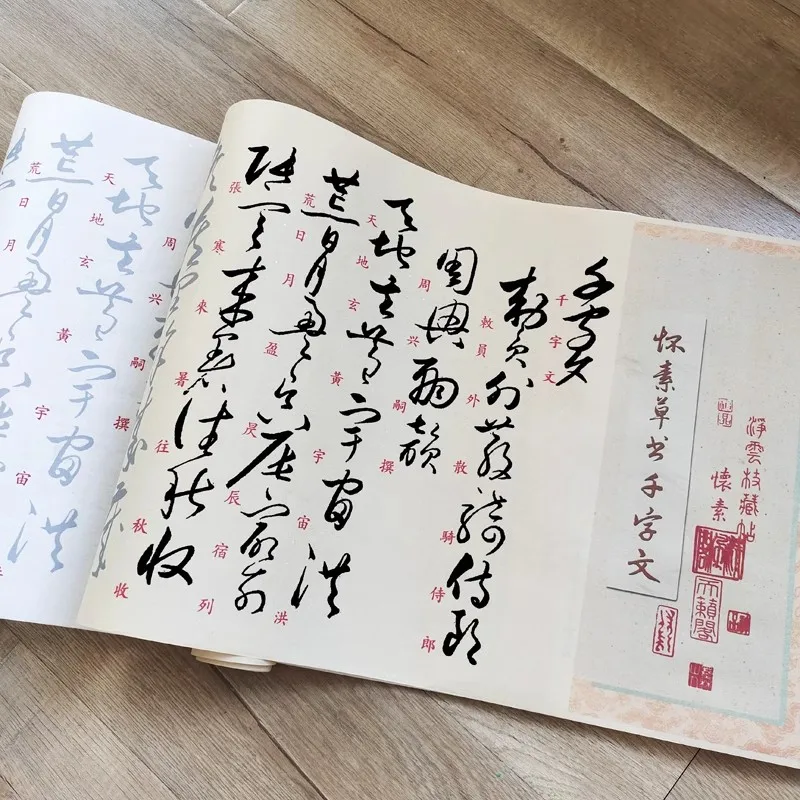 浮雲枝藏帖
懷素
怀素草书千字文
天籟閣
千字文
千字文
敕員外散騎侍郎
敕員外散騎侍郎
周興嗣撰
周兴嗣撰
天地玄黃宇宙洪
天地玄黃宇宙洪
荒日月盈昃辰宿列
荒日月盈昃辰宿列
張寒來暑往秋收
張寒來暑往秋收
周兴嗣撰
天地玄黃宇宙洪
天地玄黃宇宙
荒日月盈
荒日月